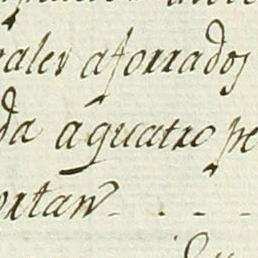 ales aforrados
da aquatro pe
ortan